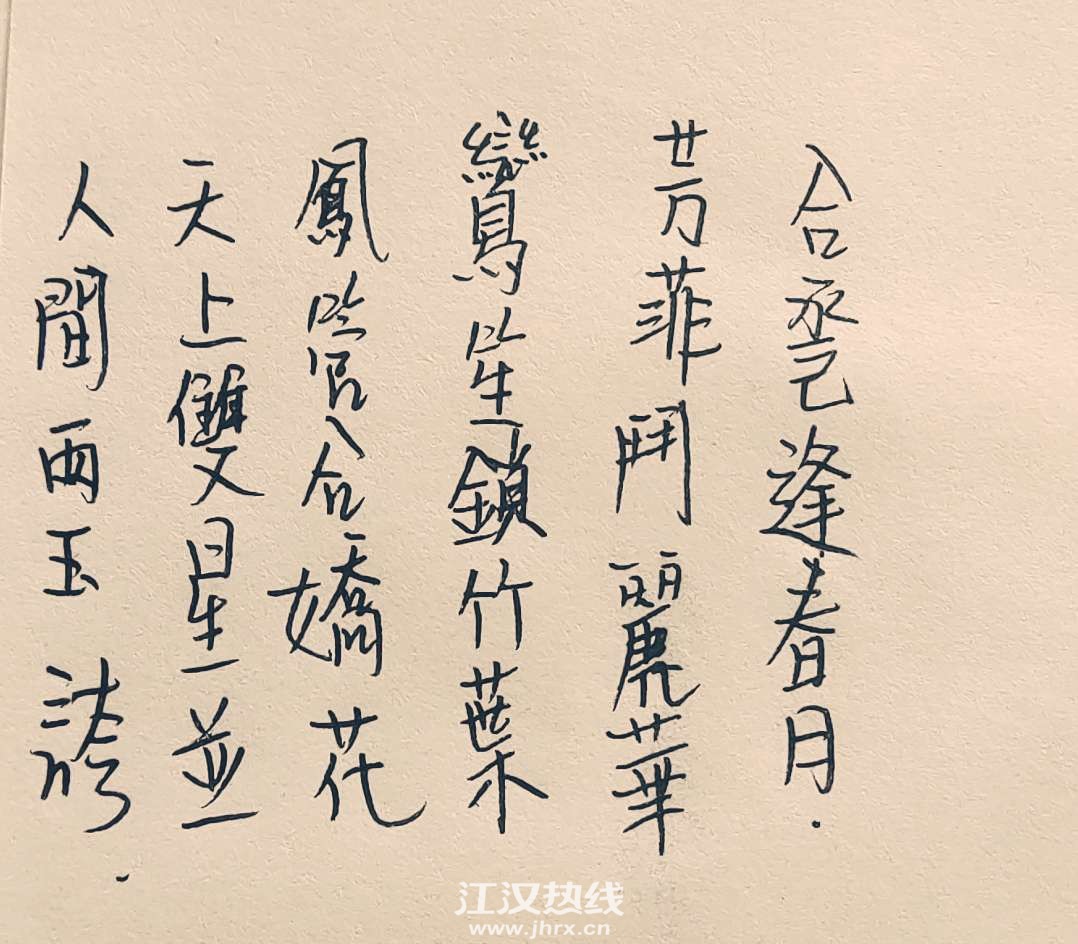 合巹逢春月.
芳菲鬥麗華
鸞笙鎖竹葉
鳳管合嬌花
天上雙星並
人間兩玉誇.
江汉热线
www.jhrx.cn